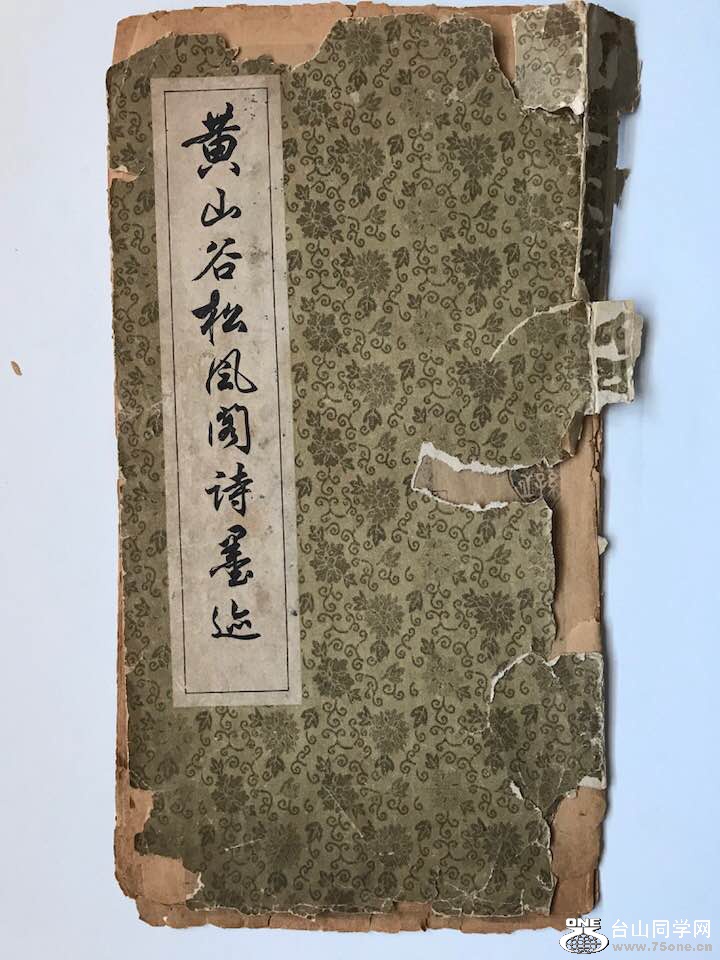 黄山谷松风阁诗墨迹
ONE
台山同学网
www.75one.cn